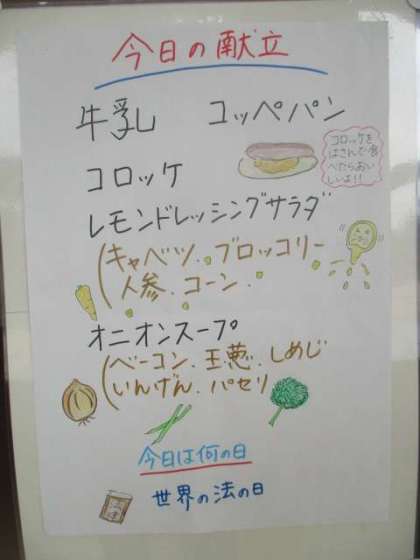 今日の献立
牛乳 コッペパン
コロッケを
はさんで食
べたらおい
しいよ!!
コロッケ
レモンドレッシングサラダ
(キャベツ、ブロッコリー
人参、コーン
オニオンスープ
(ベーコン、玉葱、しめじ
いんげん、パセリ
今日は何の日
世界の法の日